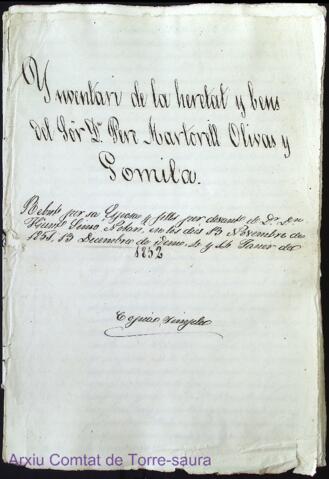 Ynventari de la heretat y bens
del Sór Dn. Pere Martorell Olivas y
Gomila.
Rebut per sa Esposa y fills per devant de Dn.
Notari, en los dias 13 Novembre de
1851, 13 Decembre de idem, y 14 Janer de
1852
Copia simple
Arxiu Comtat de Torre-saura